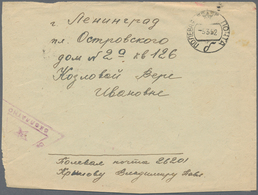 г Ленинград
пл Островского
дом N 2а кв 126
Козловой Вере
Ивановне
ПОЧТА
Полевая почта 26201
Крылову Владимиру